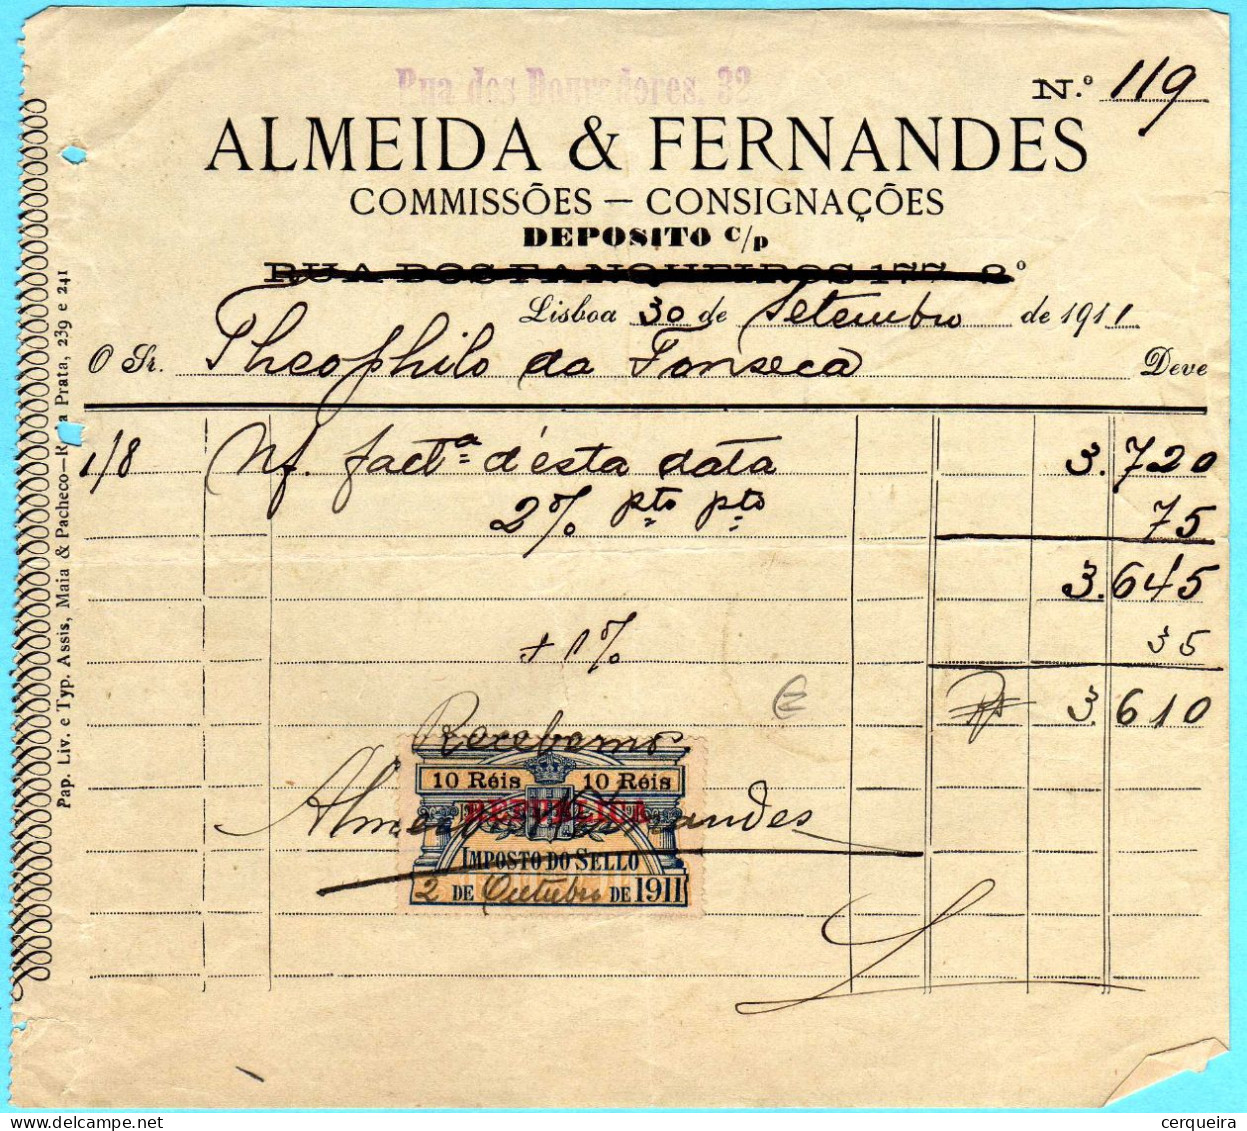 Rua dos Douradores, 32
N.º 119
ALMEIDA & FERNANDES
COMMISSÕES — CONSIGNAÇÕES
DEPOSITO c/p
RUA DOS FANQUEIROS 177 2º
Lisboa 30 de Setembro de 1911
O Sr. Theophilo da Fonseca Deve
1/8 N/. factª d'ésta data 3.720
2% pto pto 75
3.645
+ 1% 35
3.610
Recebemos
10 Réis 10 Réis
REPUBLICA
Almeida & Fernandes
IMPOSTO DO SELLO
2 DE Outubro DE 1911
Pap. Liv. e Typ. Assis, Maia & Pacheco—R a Prata, 239 e 241
cerqueira